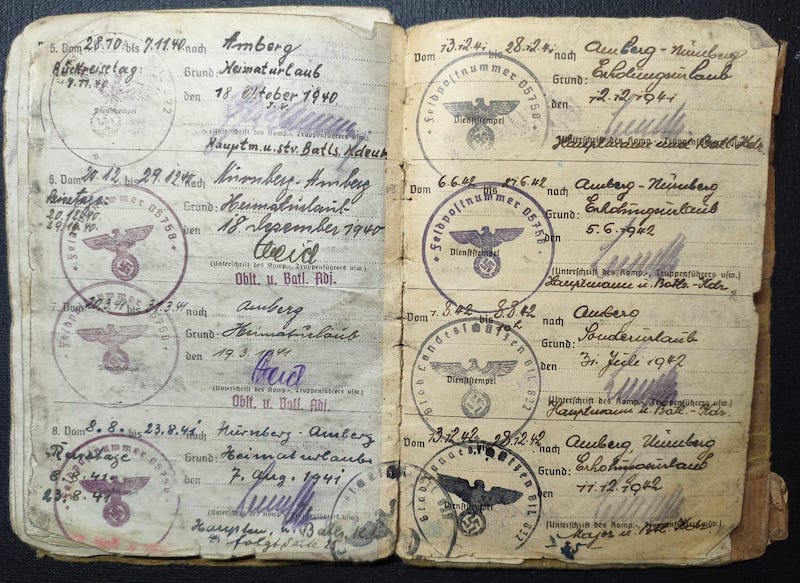 5. Vom 28.10. bis 7.11.40 nach Amberg
Rückreisetag: 7.11.40
Grund: Heimaturlaub
den 18 Oktober 1940
Dienststempel
(Unterschrift des Komp.-, Truppenführers usw.)
Hauptm. u. stv. Batls. Kdeur
6. Vom 20.12. 29.12.40 nach Nürnberg-Amberg
Reisetage:
20.12.40.
29.12.40.
Grund: Heimaturlaub
den 18 Dezember 1940
Feldpostnummer 05758
Dienststempel
(Unterschrift des Komp.-, Truppenführers usw.)
Oblt. u. Batl. Adj.
7. Vom 20.3.41 31.3.41 nach Amberg
Grund: Heimaturlaub
den 19.3.1941
Feldpostnummer 05758
Dienststempel
(Unterschrift des Komp.-, Truppenführers usw.)
Oblt. u. Batl. Adj.
8. Vom 8.8. bis 23.8.41 nach Nürnberg-Amberg
Reisetage
8.8.41.
23.8.41
Grund: Heimaturlaub
den 7. Aug. 1941
Feldpostnummer 05758
(Unterschrift des Komp.-, Truppenführers usw.)
Hauptm. u. Batls. Kdr.
folgt Seite
Vom 13.12.41 28.12.41 nach Amberg-Nürnberg
Grund: Erholungsurlaub
den 12.12.1941
Feldpostnummer 05758
Dienststempel
(Unterschrift des Komp.-, Truppenführers usw.)
Hauptmann und Batl. Kdr.
Vom 6.6.42 bis 21.6.42 nach Amberg-Nürnberg
Grund: Erholungsurlaub
den 5.6.1942
Feldpostnummer 05758
Dienststempel
(Unterschrift des Komp.-, Truppenführers usw.)
Hauptmann u. Batls.-Kdr.
Vom 1.8.42 bis 8.8.42 nach Amberg
Grund: Sonderurlaub
den 31. Juli 1942
Stab Landesschützen Btl. 832
Dienststempel
(Unterschrift des Komp.-, Truppenführers usw.)
Hauptmann u. Batl.-Kdr.
Vom 13.12.42 28.12.42 nach Amberg Nürnberg
Grund: Erholungsurlaub
den 11.12.1942
Stab Landesschützen Btl. 832
(Unterschrift des Komp.-, Truppenführers usw.)
Major u. Btl. Kdr.